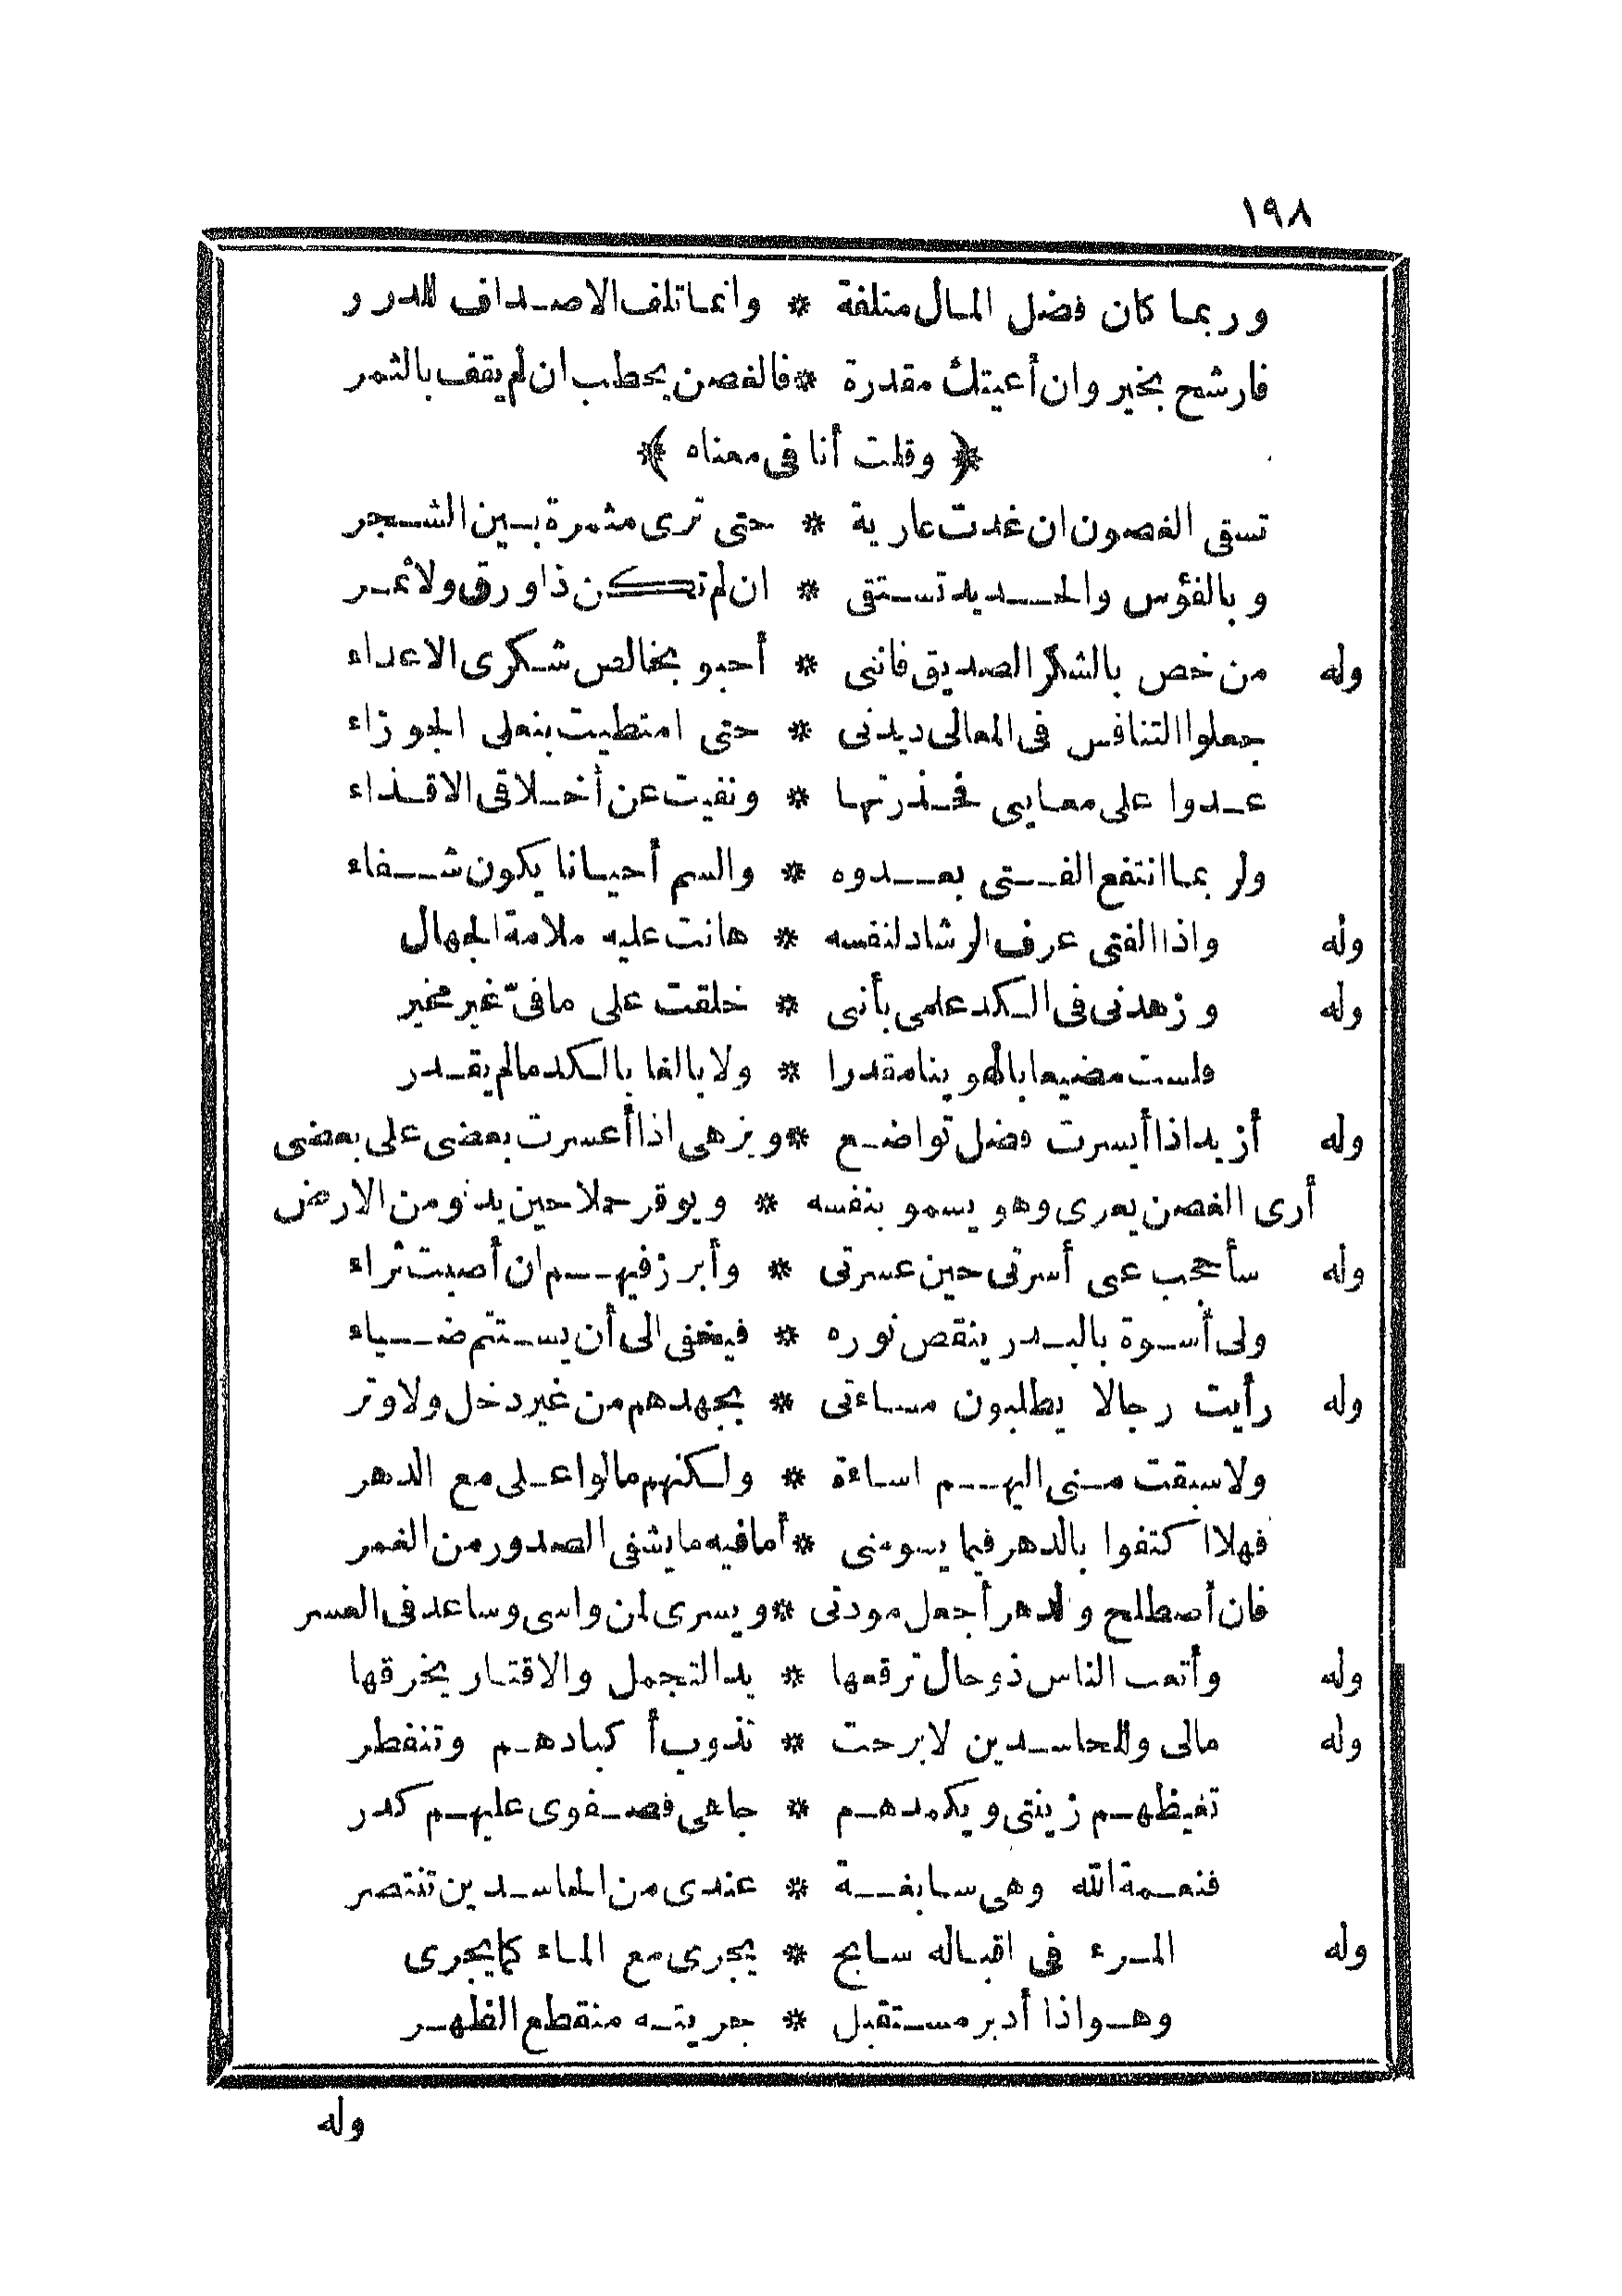 ١٩٨
وربما كان فضل المال متلفة * وانما تلف الاصداف للدرر
فارشح بخير وان أعيتك مقدرة * فالغصن يحطب ان لم يقف بالثمر
﴿ وقلت أنا فى معناه ﴾
تسقى الغصون ان غدت عارية * حتى ترى مثمرة بين الشجر
وبالفؤس والحديد تستقى * ان لم تكن ذا ورق ولا ثمر
وله من خص بالشكر الصديق فاننى * أحبو بخالص شكرى الاعداء
جعلوا التنافس فى المعالى ديدنى * حتى امتطيت بنعلى الجوزاء
عدوا على معايبى فحذرتها * ونفيت عن أخلاقى الاقذاء
ولربما انتفع الفتى بعدوه * والسم أحيانا يكون شفاء
وله واذا الفتى عرف الرشاد لنفسه * هانت عليه ملامة الجهال
وله وزهدنى فى الكد علمى بأننى * خلقت على ما فىّ غير مخير
ولست مضيعا بالهوينا مقدرا * ولا بالغا بالكد مالم يقدر
وله أزيد اذا أيسرت فضل تواضع * ويزهى اذا أعسرت بعضى على بعضى
أرى الغصن يعرى وهو يسمو بنفسه * ويوقر حملا حين يدنو من الارض
وله سأحجب عنى أسرتى حين عسرتى * وأبرز فيهم ان أصبت ثراء
ولى أسوة بالبدر ينقص نوره * فيخفى الى أن يستتم ضياء
وله رأيت رجالا يطلبون مساءتى * بجهدهم من غير دخل ولا وتر
ولا سبقت منى اليهم اساءة * ولكنهم مالوا على مع الدهر
فهلا اكتفوا بالدهر فيما يسومنى * أما فيه ما يشفى الصدور من الغمر
فان أصطلح والدهر أجعل مودتى * ويسرى لمن واسى وساعد فى العسر
وله وأتعب الناس ذو حال ترقعها * يد التجمل والاقتار يخرقها
وله مالى وللحاسدين لابرحت * تذوب أكبادهم وتنفطر
تغيظهم زينتى ويكمدهم * جاهى فصفوى عليهم كدر
فنعمة الله وهى سابغة * عندى من الحاسدين تنتصر
وله المرء فى اقباله سابح * يجرى مع الماء كما يجرى
وهو اذا أدبر مستقبل * جريته منقطع الظهر
وله